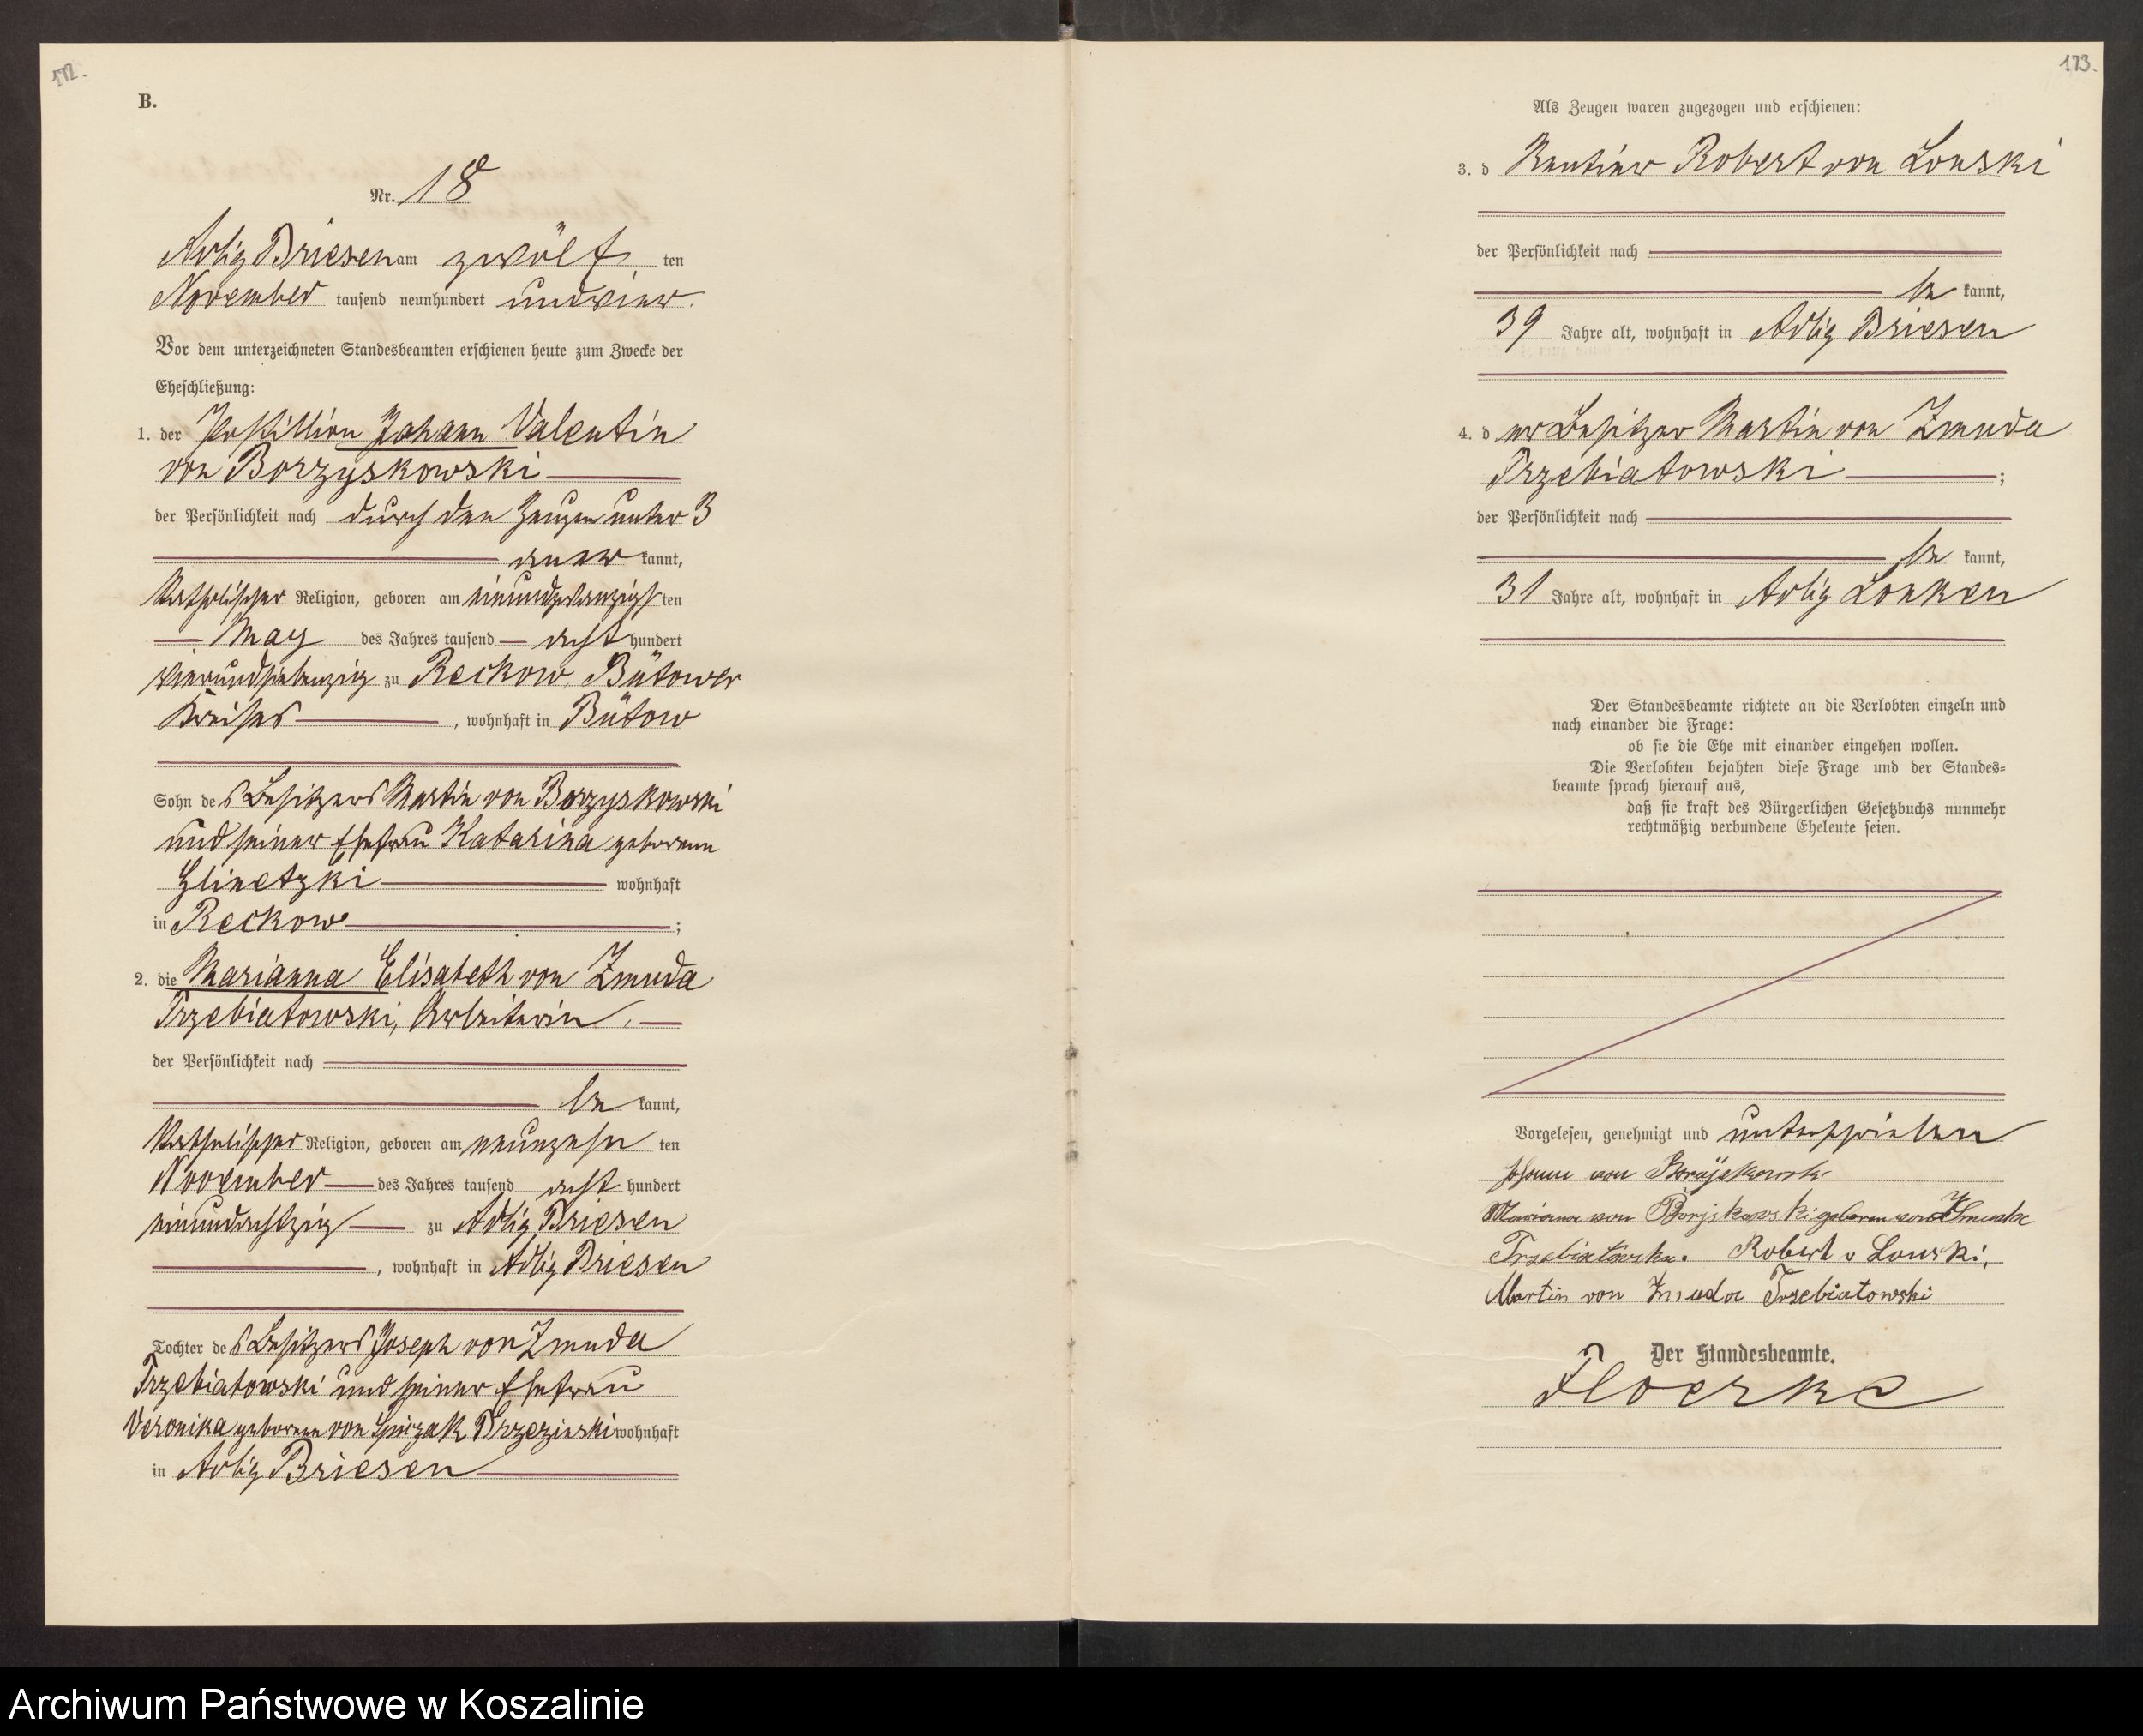 172.
B.
Nr. 18
Adlig Briesen am zwölf ten
November tausend neunhundert und vier.
Vor dem unterzeichneten Standesbeamten erschienen heute zum Zwecke der
Eheschließung:
1. der Postillion Johann Valentin
von Borzyskowski
der Persönlichkeit nach durch den Zeugen unter 3
aner kannt,
katholischer Religion, geboren am einundzwanzigsten
May des Jahres tausend acht hundert
vierundsiebenzig zu Reckow, Bütower
Kreises , wohnhaft in Bütow
Sohn des Besitzers Martin von Borzyskowski
und seiner Ehefrau Katarina geborenen
Glinetzki wohnhaft
in Reckow ;
2. die Marianna Elisabeth von Zmuda
Trzebiatowski, Arbeiterin,
der Persönlichkeit nach
be kannt,
katholischer Religion, geboren am neunzehn ten
November des Jahres tausend acht hundert
einundachtzig zu Adlig Briesen
, wohnhaft in Adlig Briesen
Tochter des Besitzers Joseph von Zmuda
Trzebiatowski und seiner Ehefrau
Veronika geborenen von Spiczak Brzezinski wohnhaft
in Adlig Briesen
173.
Als Zeugen waren zugezogen und erschienen:
3. d Rentier Robert von Lonski
der Persönlichkeit nach
be kannt,
39 Jahre alt, wohnhaft in Adlig Briesen
4. d er Besitzer Martin von Zmuda
Trzebiatowski ;
der Persönlichkeit nach
be kannt,
31 Jahre alt, wohnhaft in Adlig Lonken
Der Standesbeamte richtete an die Verlobten einzeln und
nach einander die Frage:
ob sie die Ehe mit einander eingehen wollen.
Die Verlobten bejahten diese Frage und der Standes=
beamte sprach hierauf aus,
daß sie kraft des Bürgerlichen Gesetzbuchs nunmehr
rechtmäßig verbundene Eheleute seien.
Vorgelesen, genehmigt und unterschrieben
Johann von
Mariana von Borzskowski geboren von Zmuda
Trzebiatowska. Robert v Lonski,
Martin von Zmuda Trzebiatowski
Der Standesbeamte.
Floerke
Archiwum Państwowe w Koszalinie